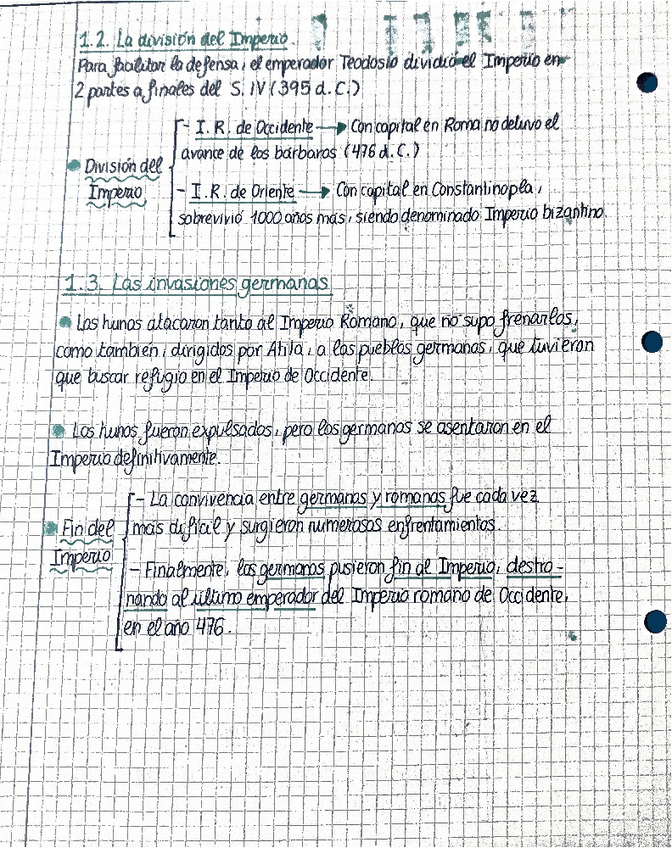 1.2. La división del Imperio.
Para facilitar la defensa, el emperador Teodosio dividió el Imperio en
2 partes a finales del S. IV (395 d. C.)
- I. R. de Occidente → Con capital en Roma no detuvo el
avance de los bárbaros (476 d. C.)
División del
Imperio
- I. R. de Oriente → Con capital en Constantinopla,
sobrevivió 1000 años más, siendo denominado Imperio bizantino.
1.3. Las invasiones germanas
Los hunos atacaron tanto al Imperio Romano, que no supo frenarlos,
como también, dirigidos por Atila, a los pueblos germanos, que tuvieron
que buscar refugio en el Imperio de Occidente.
Los hunos fueron expulsados, pero los germanos se asentaron en el
Imperio definitivamente.
- La convivencia entre germanos y romanos fue cada vez
más difícil y surgieron numerosos enfrentamientos.
Fin del
Imperio
- Finalmente, los germanos pusieron fin al Imperio, destro-
nando al último emperador del Imperio romano de Occidente,
en el año 476.